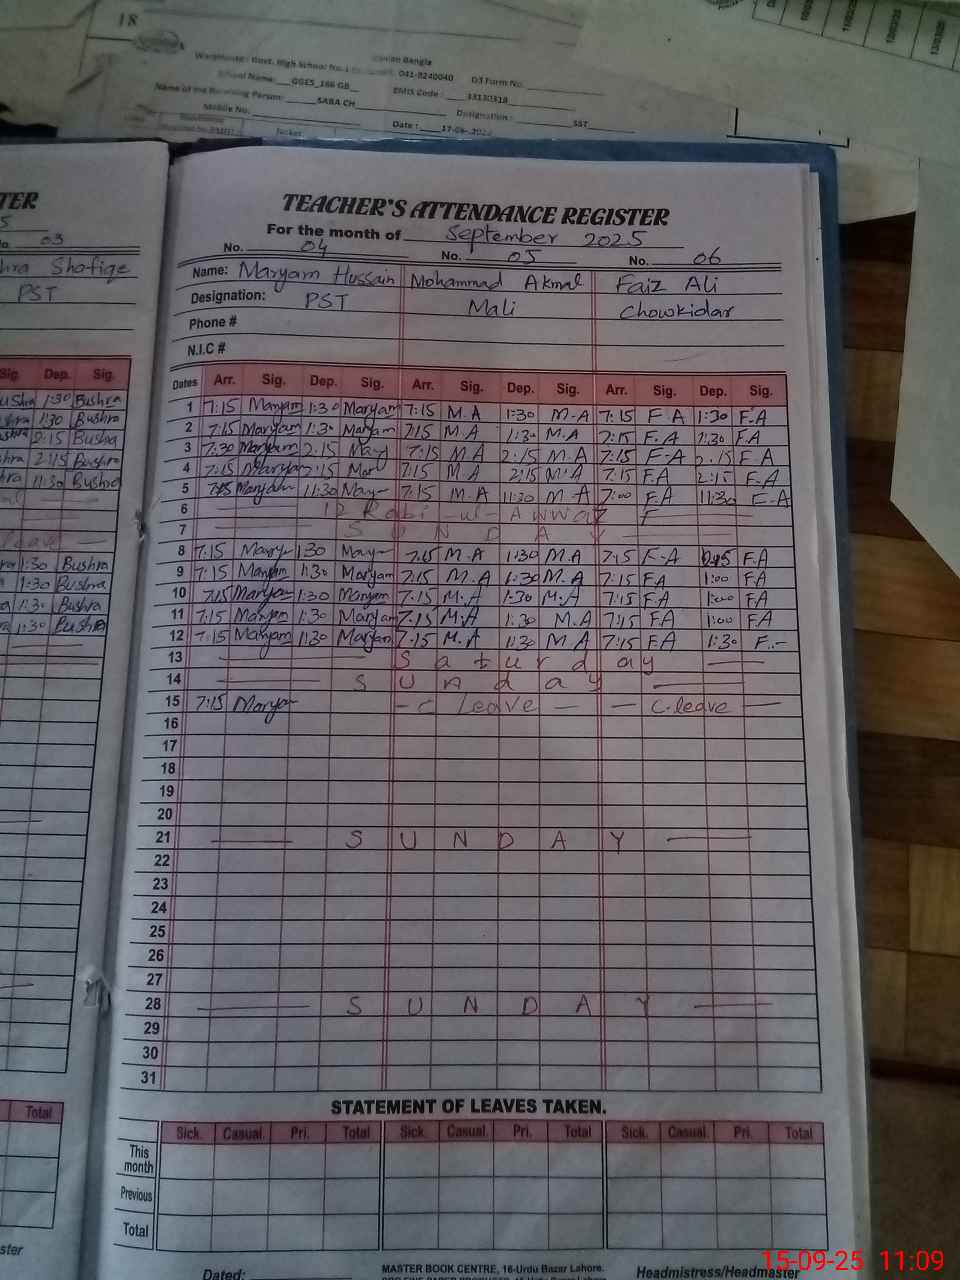 18
Warehouse: Govt. High School No.1 041-9240040 D3 Form No.
School Name: GGES_166 GB EMIS Code: 33130318
Name of the Receiving Person: SABA CH Designation: SST
Mobile No. Date: 17-09-2022
TEACHER'S ATTENDANCE REGISTER
For the month of September 2025
No. 04 No. 05 No. 06
Name: Maryam Hussain Mohammad Akmal Faiz Ali
Designation: PST Mali Chowkidar
Phone #
N.I.C #
Dates Arr. Sig. Dep. Sig. Arr. Sig. Dep. Sig. Arr. Sig. Dep. Sig.
1 7:15 Maryam 1:30 Maryam 7:15 M.A 1:30 M.A 7:15 F.A 1:30 F.A
2 7:15 Maryam 1:30 Maryam 7:15 M.A 1:30 M.A 7:15 F.A 1:30 F.A
3 7:30 Maryam 2:15 May 7:15 M.A 2:15 M.A 7:15 F-A 2:15 F-A
4 7:15 Maryam 2:15 Mar 7:15 M A 2:15 M.A 7:15 F.A 2:15 F-A
5 7:15 Maryam 11:30 May 7:15 M.A 11:30 M-A 7:00 F.A 11:30 F-A
6 12 Rabi-ul-Awwal
7 S U N D A Y
8 7:15 Mary 1:30 May 7:15 M.A 1:30 M.A 7:15 F-A F.A
9 7:15 Maryam 1:30 Maryam 7:15 M.A 1:30 M.A 7:15 F.A 1:00 F.A
10 7:15 Maryam 1:30 Maryam 7:15 M.A 1:30 M.A 7:15 F.A 1:00 F.A
11 7:15 Maryam 1:30 Maryam 7:15 M.A 1:30 M.A 7:15 F.A 1:00 F.A
12 7:15 Maryam 1:30 Maryam 7:15 M.A 1:30 M.A 7:15 F.A 1:30 F.
13 S a t u r d a y
14 S u n d a y
15 7:15 Maryam - C Leave - - C.leave -
16
17
18
19
20
21 S U N D A Y
22
23
24
25
26
27
28 S U N D A Y
29
30
31
STATEMENT OF LEAVES TAKEN.
Sick. Casual. Pri. Total Sick. Casual. Pri. Total Sick. Casual. Pri. Total
This month
Previous
Total
Dated: MASTER BOOK CENTRE, 16-Urdu Bazar Lahore. Headmistress/Headmaster
15-09-25 11:09
TER
03
hra Shafiqe
PST
Sig. Dep. Sig.
Bushra 1:30 Bushra
1:30 Bushra
2:15 Bushra
2:15 Bushra
11:30 Bushra
leave
1:30 Bushra
1:30 Bushra
1:30 Bushra
1:30 Bushra
Total
ster